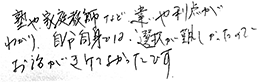 塾や家庭教師など違いや利点が
わかり、自分自身では選択が難しかったので
お話がきけてよかったです